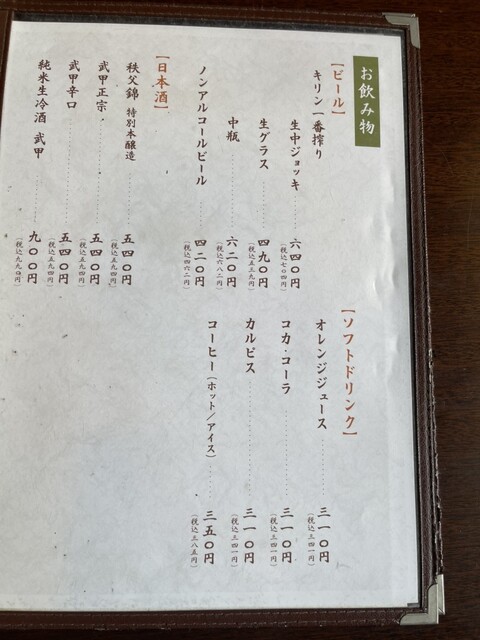 お飲み物
【ビール】
キリン一番搾り
生中ジョッキ 六四〇円
（税込七〇四円）
生グラス 四九〇円
（税込五三九円）
中瓶 六二〇円
（税込六八二円）
ノンアルコールビール 四二〇円
（税込四六二円）
【日本酒】
秩父錦 特別本醸造 五四〇円
（税込五九四円）
武甲正宗 五四〇円
（税込五九四円）
武甲辛口 五四〇円
（税込五九四円）
純米生冷酒 武甲 九〇〇円
（税込九九〇円）
【ソフトドリンク】
オレンジジュース 三一〇円
（税込三四一円）
コカ・コーラ 三一〇円
（税込三四一円）
カルピス 三一〇円
（税込三四一円）
コーヒー（ホット／アイス） 三五〇円
（税込三八五円）